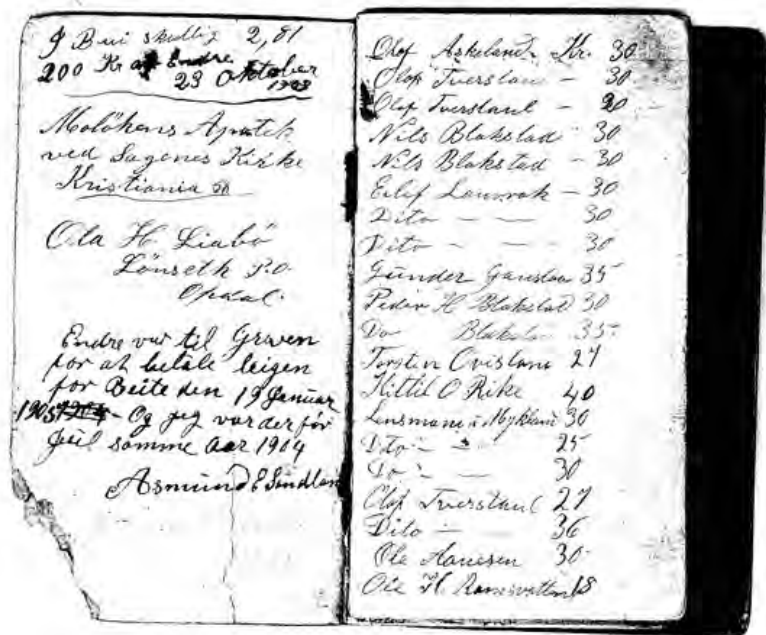 J Bui skuldig 2,81
200 Kr af Endre
23 Oktober
1903
Molökens Apotek
ved Sagenes Kirke
Kristiania
Ola H. Liabö
Lönseth P.O.
Opdal.
Endre var til Greven
for at betale leigen
for Beite den 19 Januar
1905 1904 - Og jeg var der før
Juil samme Aar 1904
Asmund E Sandland
Olof Askeland Kr. 30
Olof Tverstaul - 30
Olof Tverstaul - 20
Nils Blakstad 30
Nils Blakstad - 30
Eilef - 30
Dito - - 30
Dito - - 30
Gunder 35
Peder H Blakstad 30
Do Blakstad 35
Torsten Ovsland 27
Kittil O Rike 40
Lensmann i Mykland 30
Dito - - 25
Do - - 30
Olof Tverstaul 27
Dito - 36
Ole Hanesen 30
Ole H. Ramsvatten 18